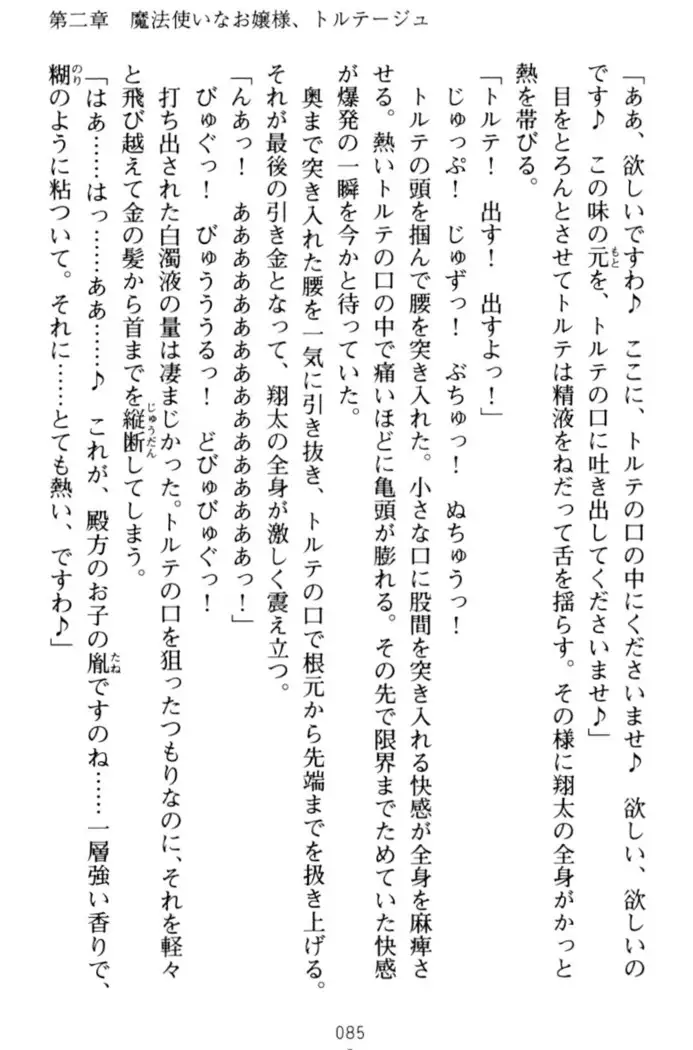 第二章　魔法使いなお嬢様、トルテージュ
「ああ、欲しいですわ♪　ここに、トルテの口の中にくださいませ♪　欲しい、欲しいの
です♪　この味の元を、トルテの口に吐き出してくださいませ♪」
目をとろんとさせてトルテは精液をねだって舌を揺らす。その様に翔太の全身がかっと
熱を帯びる。
「トルテ！　出す！　出すよっ！」
じゅっぷ！　じゅずっ！　ぶちゅっ！　ぬちゅうっ！
トルテの頭を掴んで腰を突き入れた。小さな口に股間を突き入れる快感が全身を麻痺さ
せる。熱いトルテの口の中で痛いほどに亀頭が膨れる。その先で限界までためていた快感
が爆発の一瞬を今かと待っていた。
奥まで突き入れた腰を一気に引き抜き、トルテの口で根元から先端までを扱き上げる。
それが最後の引き金となって、翔太の全身が激しく震え立つ。
「んあっ！　あああああああああああああああぁっ！」
びゅぐっ！　びゅうううるっ！　どびゅびゅぐっ！
打ち出された白濁液の量は凄まじかった。トルテの口を狙ったつもりなのに、それを軽々
と飛び越えて金の髪から首までを縦断してしまう。
「はぁ……はっ……ああ……♪　これが、殿方のお子の胤ですのね……一層強い香りで、
糊のように粘ついて。それに……とても熱い、ですわ♪」
085